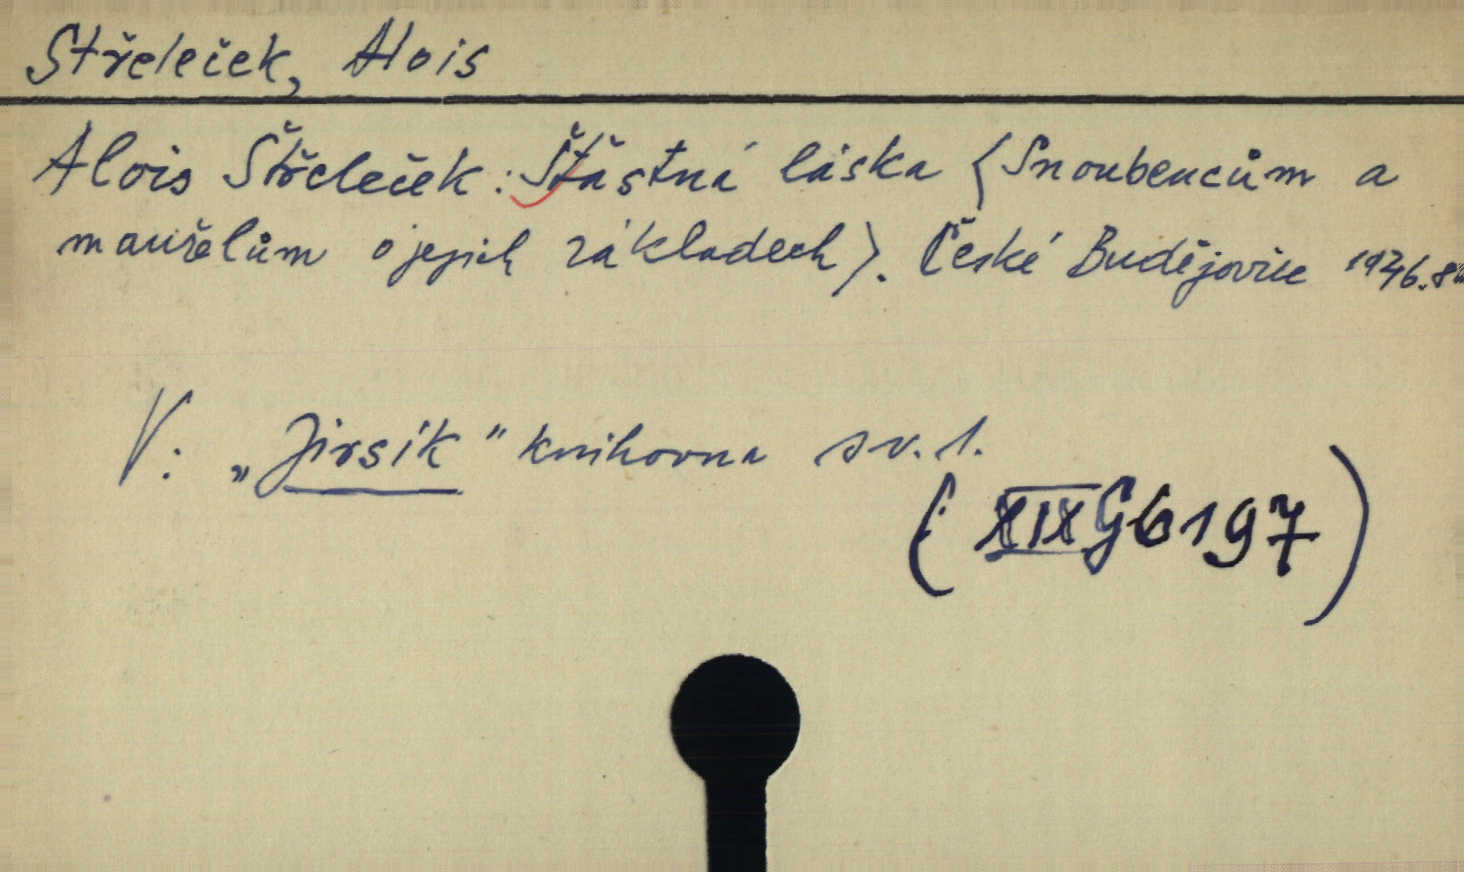 Střeleček, Alois
Alois Střeleček: Šťastná láska (Snoubencům a
manželům o jejich základech). České Budějovice 1946. 8°
V: „Jirsík" knihovna sv. 1.
(: XIX G 6197)